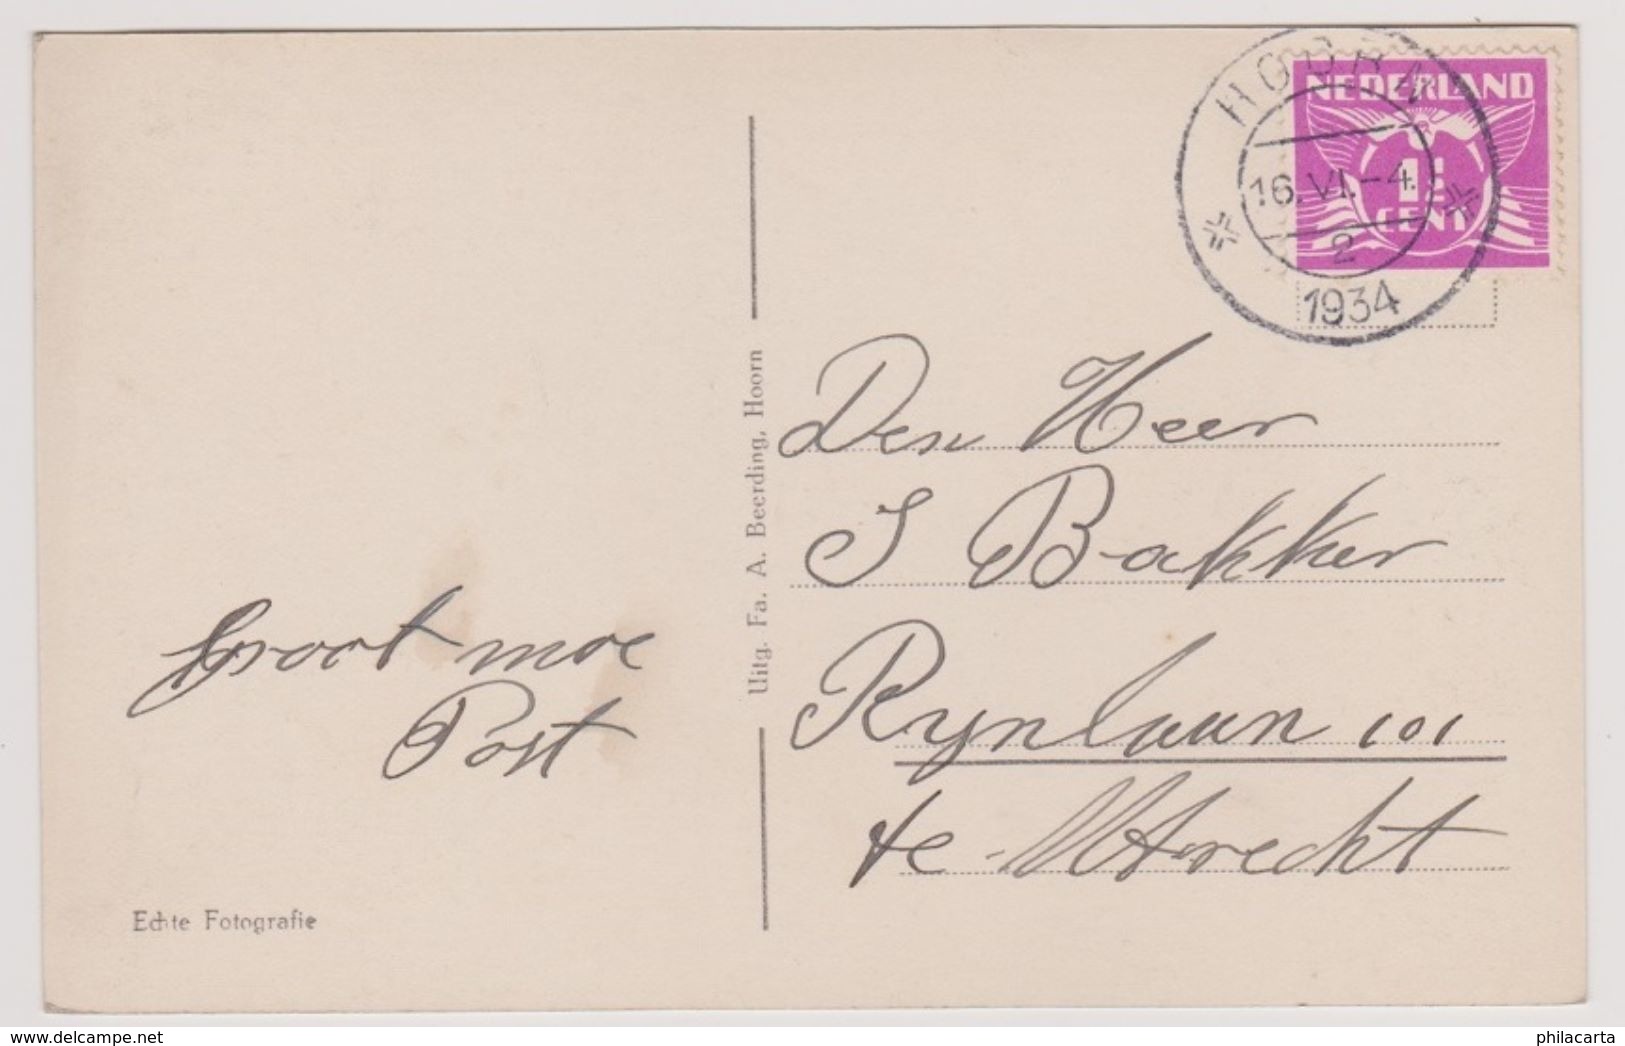 HOORN
16.VI.-4.
2
1934
NEDERLAND
1½
CENT
Den Heer
S Bakker
Rynlaan 101
te Utrecht
Groot moe
Post
Uitg. Fa. A. Beerding, Hoorn
Echte Fotografie
delcampe.net
philacarta